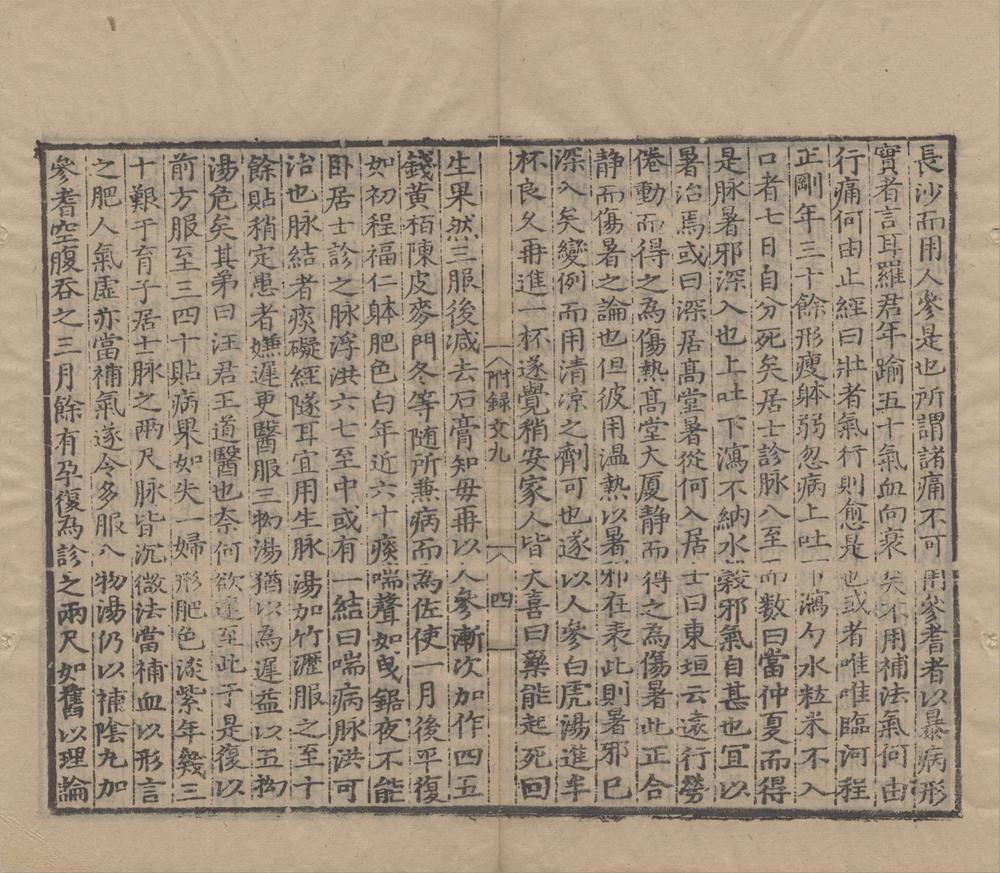 長沙而用人參是也所謂諸痛不可用參耆者以暴病形
實者言耳羅君年踰五十氣血向衰矣不用補法氣何由
行痛何由止經曰壯者氣行則愈是也或者唯唯臨河程
正剛年三十餘形瘦躰弱忽病上吐下瀉勺水粒米不入
口者七日自分死矣居士診脉八至而數曰當仲夏而得
是脉暑邪深入也上吐下瀉不納水糓邪氣自甚也宜以
暑治焉或曰深居髙堂暑從何入居士曰東垣云遠行勞
倦動而得之為傷熱髙堂大厦静而得之為傷暑此正合
静而傷暑之論也但彼用温熱以暑邪在表此則暑邪已
深入矣變例而用清凉之劑可也遂以人參白虎湯進半
杯良久再進一杯遂覺稍安家人皆大喜曰藥能起死回
附録文九
四
生果然三服後減去石膏知母再以人參漸次加作四五
錢黄栢陳皮麥門冬等随所兼病而為佐使一月後平復
如初程福仁躰肥色白年近六十痰喘聲如曳鋸夜不能
卧居士診之脉浮洪六七至中或有一結曰喘病脉洪可
治也脉結者痰礙經隧耳宜用生脉湯加竹瀝服之至十
餘貼稍定患者嫌遲更醫服三拗湯猶以為遲益以五拗
湯危矣其弟曰汪君王道醫也奈何欲速至此于是復以
前方服至三四十貼病果如失一婦形肥色淡紫年幾三
十艱于育子居士脉之兩尺脉皆沉微法當補血以形言
之肥人氣虚亦當補氣遂令多服八物湯仍以補陰丸加
參耆空腹吞之三月餘有孕復為診之兩尺如舊以理論